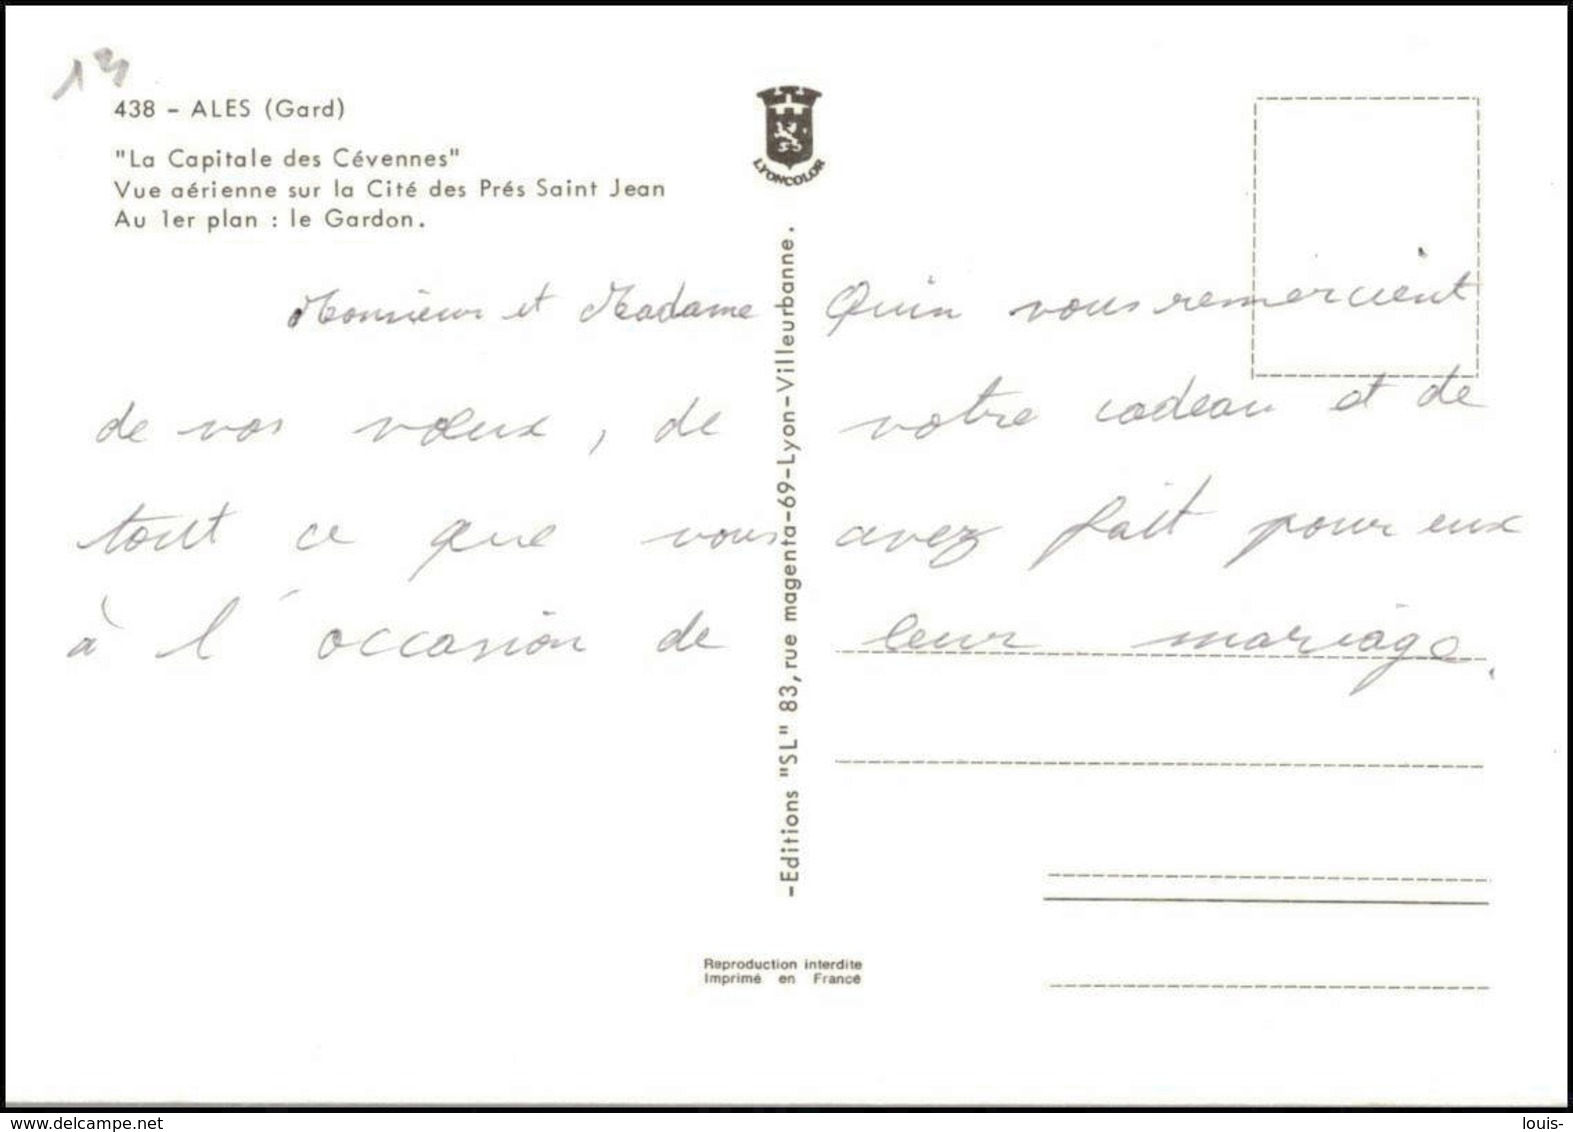 13
438 - ALES (Gard)
"La Capitale des Cévennes"
Vue aérienne sur la Cité des Prés Saint Jean
Au 1er plan : le Gardon.
LYONCOLOR
Monsieur et Madame Quin vous remercient
de vos vœux, de votre cadeau et de
tout ce que vous avez fait pour eux
à l'occasion de leur mariage.
-Editions "SL" 83, rue magenta-69-Lyon-Villeurbanne.
Reproduction interdite
Imprimé en France
www.delcampe.net
louis-